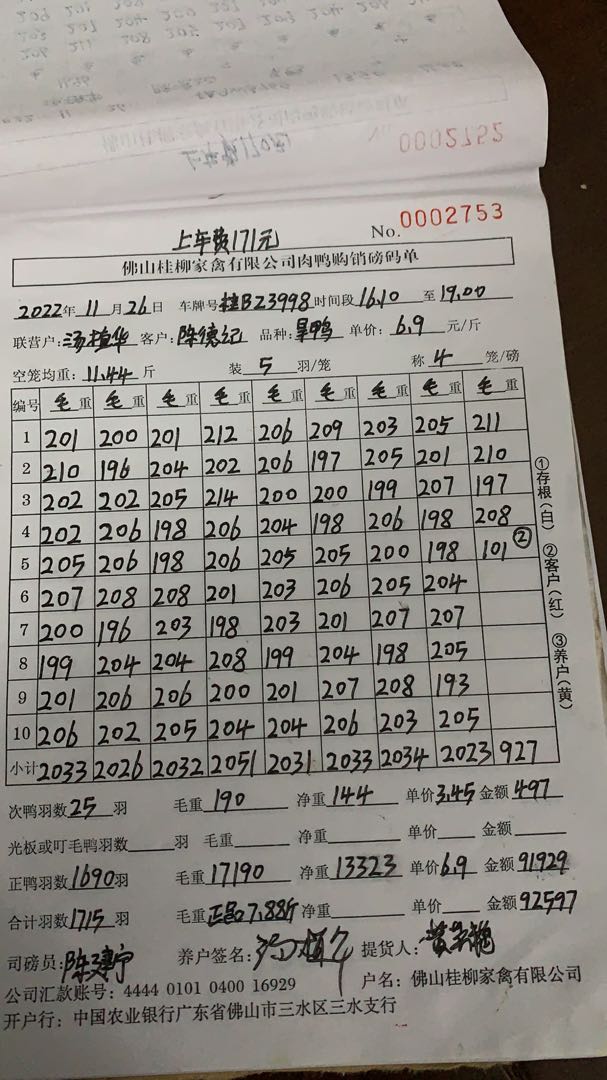 0002752
上车费171元
No. 0002753
佛山桂柳家禽有限公司肉鸭购销磅码单
2022年11月26日 车牌号桂BZ3998时间段16.10至19.00
联营户:汤植华 客户:陈德记 品种: 单价:6.9元/斤
空笼均重:11.44斤 装5羽/笼 称4笼/磅
编号 毛重 毛重 毛重 毛重 毛重 毛重 毛重 毛重 毛重
1 201 200 201 212 206 209 203 205 211
2 210 196 204 202 206 197 205 201 210
3 202 202 205 214 200 200 199 207 197
4 202 206 198 206 204 198 206 198 208
5 205 206 198 206 205 205 200 198 101②
6 207 208 208 201 203 206 205 204
7 200 196 203 198 203 201 207 207
8 199 204 204 208 199 204 198 205
9 201 206 206 200 201 207 208 193
10 206 202 205 204 204 206 203 205
小计 2033 2026 2032 2051 2031 2033 2034 2023 927
①存根(白) ②客户(红) ③养户(黄)
次鸭羽数25羽 毛重190 净重144 单价3.45 金额497
光板或叮毛鸭羽数 羽 毛重 净重 单价 金额
正鸭羽数1690羽 毛重17190 净重13323 单价6.9 金额91929
合计羽数1715羽 毛重正品7.88斤 净重 单价 金额92597
司磅员:陈建宁 养户签名: 提货人:
公司汇款账号:4444 0101 0400 16929 户名:佛山桂柳家禽有限公司
开户行:中国农业银行广东省佛山市三水区三水支行